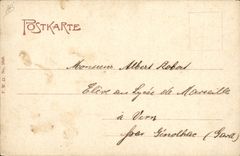 POSTKARTE
Monsieur Albert Robert
Elève au Lycée de Marseille
à Vern
par Génolhac (Gard)